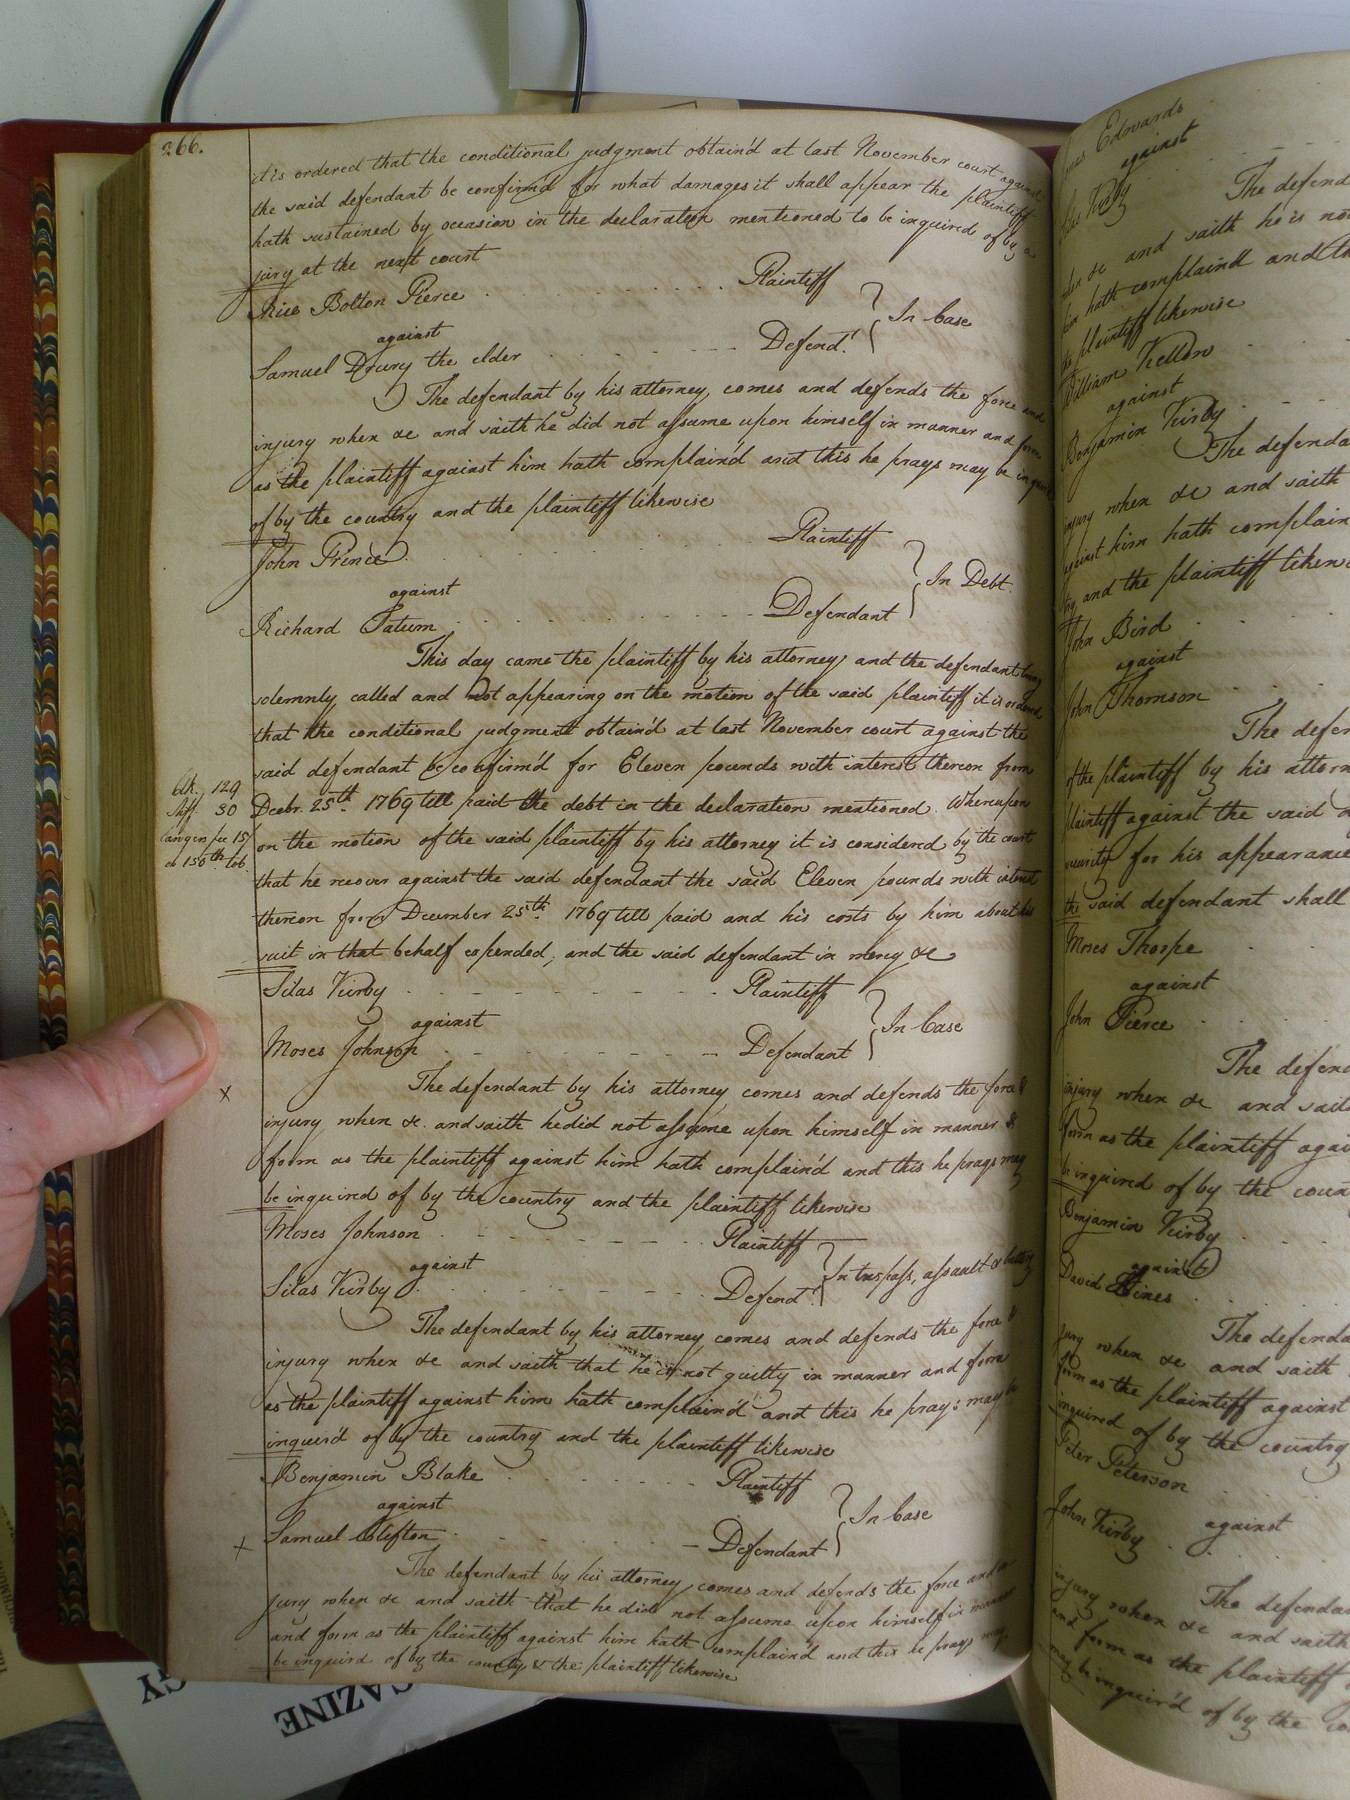 266.
it is ordered that the conditional judgment obtain'd at last November court against
the said defendant be confirm'd for what damages it shall appear the plaintiff
hath sustained by occasion in the declaration mentioned to be inquired of by a
jury at the next court
Rice Bolton Pierce Plaintiff
against In Case
Samuel Drury the elder Defend.t
The defendant by his attorney, comes and defends the force and
injury when &c and saith he did not assume upon himself in manner and form
as the plaintiff against him hath complain'd and this he prays may be inquired
of by the country and the plaintiff likewise
John Prince Plaintiff
against In Debt
Richard Tatum Defendant
This day came the plaintiff by his attorney and the defendant being
solemnly called and not appearing on the motion of the said plaintiff it is ordered
that the conditional judgment obtain'd at last November court against the
said defendant be confirm'd for Eleven pounds with interest thereon from
Clk. 129
Shff. 30
Decebr. 25th. 1769 till paid the debt in the declaration mentioned. Whereupon
on the motion of the said plaintiff by his attorney it is considered by the court
fee 15/
or 150 tob.
that he recover against the said defendant the said Eleven pounds with interest
thereon from December 25th. 1769 till paid and his costs by him about his
suit in that behalf expended, and the said defendant in mercy &c
Silas Kirby Plaintiff
against In Case
Moses Johnson Defendant
The defendant by his attorney comes and defends the force &
x
injury when &c. and saith he did not assume upon himself in manner &
form as the plaintiff against him hath complain'd and this he prays may
be inquired of by the country and the plaintiff likewise
Moses Johnson Plaintiff
against In trespass, assault & battery
Silas Kirby Defend.t
The defendant by his attorney comes and defends the force &
injury when &c and saith that he is not guilty in manner and form
as the plaintiff against him hath complain'd and this he prays may be
inquir'd of by the country and the plaintiff likewise
Benjamin Blake Plaintiff
against In Case
Samuel Clifton Defendant
x
The defendant by his attorney comes and defends the force and in
jury when &c and saith that he did not assume upon himself in manner
and form as the plaintiff against him hath complain'd and this he prays may
be inquird of by the county & the plaintiff likewise
Edwards
against
Kirby
The defend
when &c and saith he is not
him hath complaind and th
the plaintiff likewise
William Kellow
against
Benjamin Kirby
The defenda
injury when &c and saith
against him hath complain
try and the plaintiff likewi
John Bird
against
John Thomson
The defen
of the plaintiff by his attorn
plaintiff against the said d
security for his appearance
the said defendant shall
Moses Thorpe
against
John Pierce
The defend
injury when &c and sait
form as the plaintiff again
be inquired of by the coun
Benjamin Kirby
against
David Hines
The defenda
jury when &c and saith
form as the plaintiff against
inquired of by the country
Peter Peterson
against
John Kirby
The defendan
injury when &c and saith
and form as the plaintiff
may be inquir'd of by the co
AZINE
GY